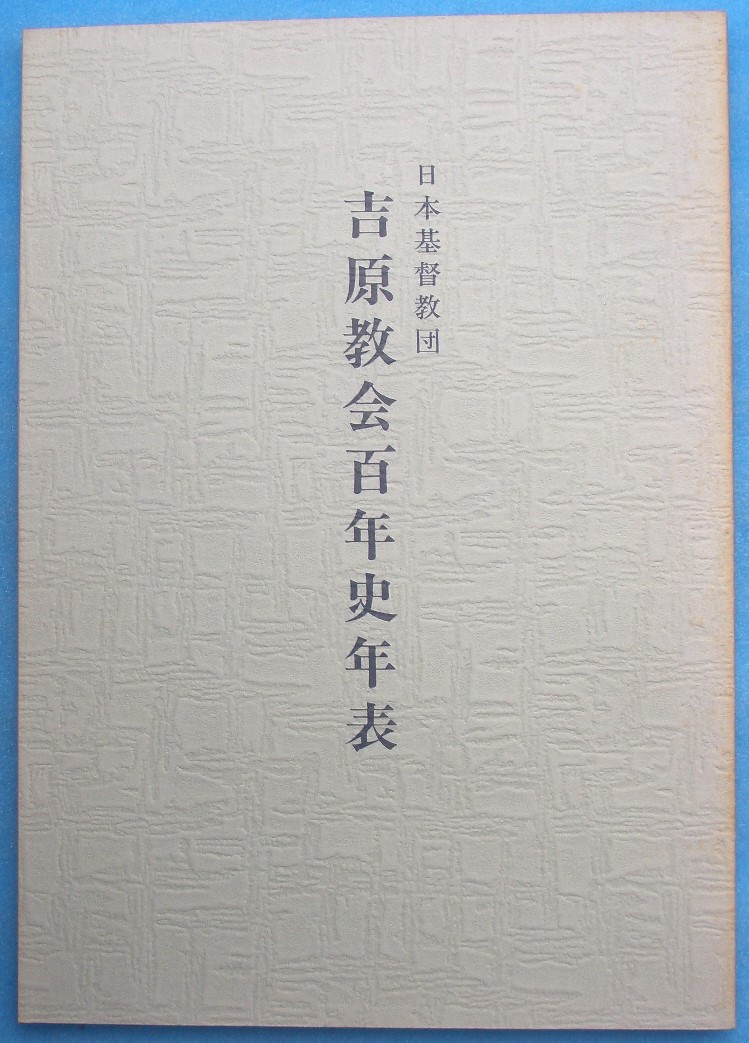 日本基督教団
吉原教会百年史年表